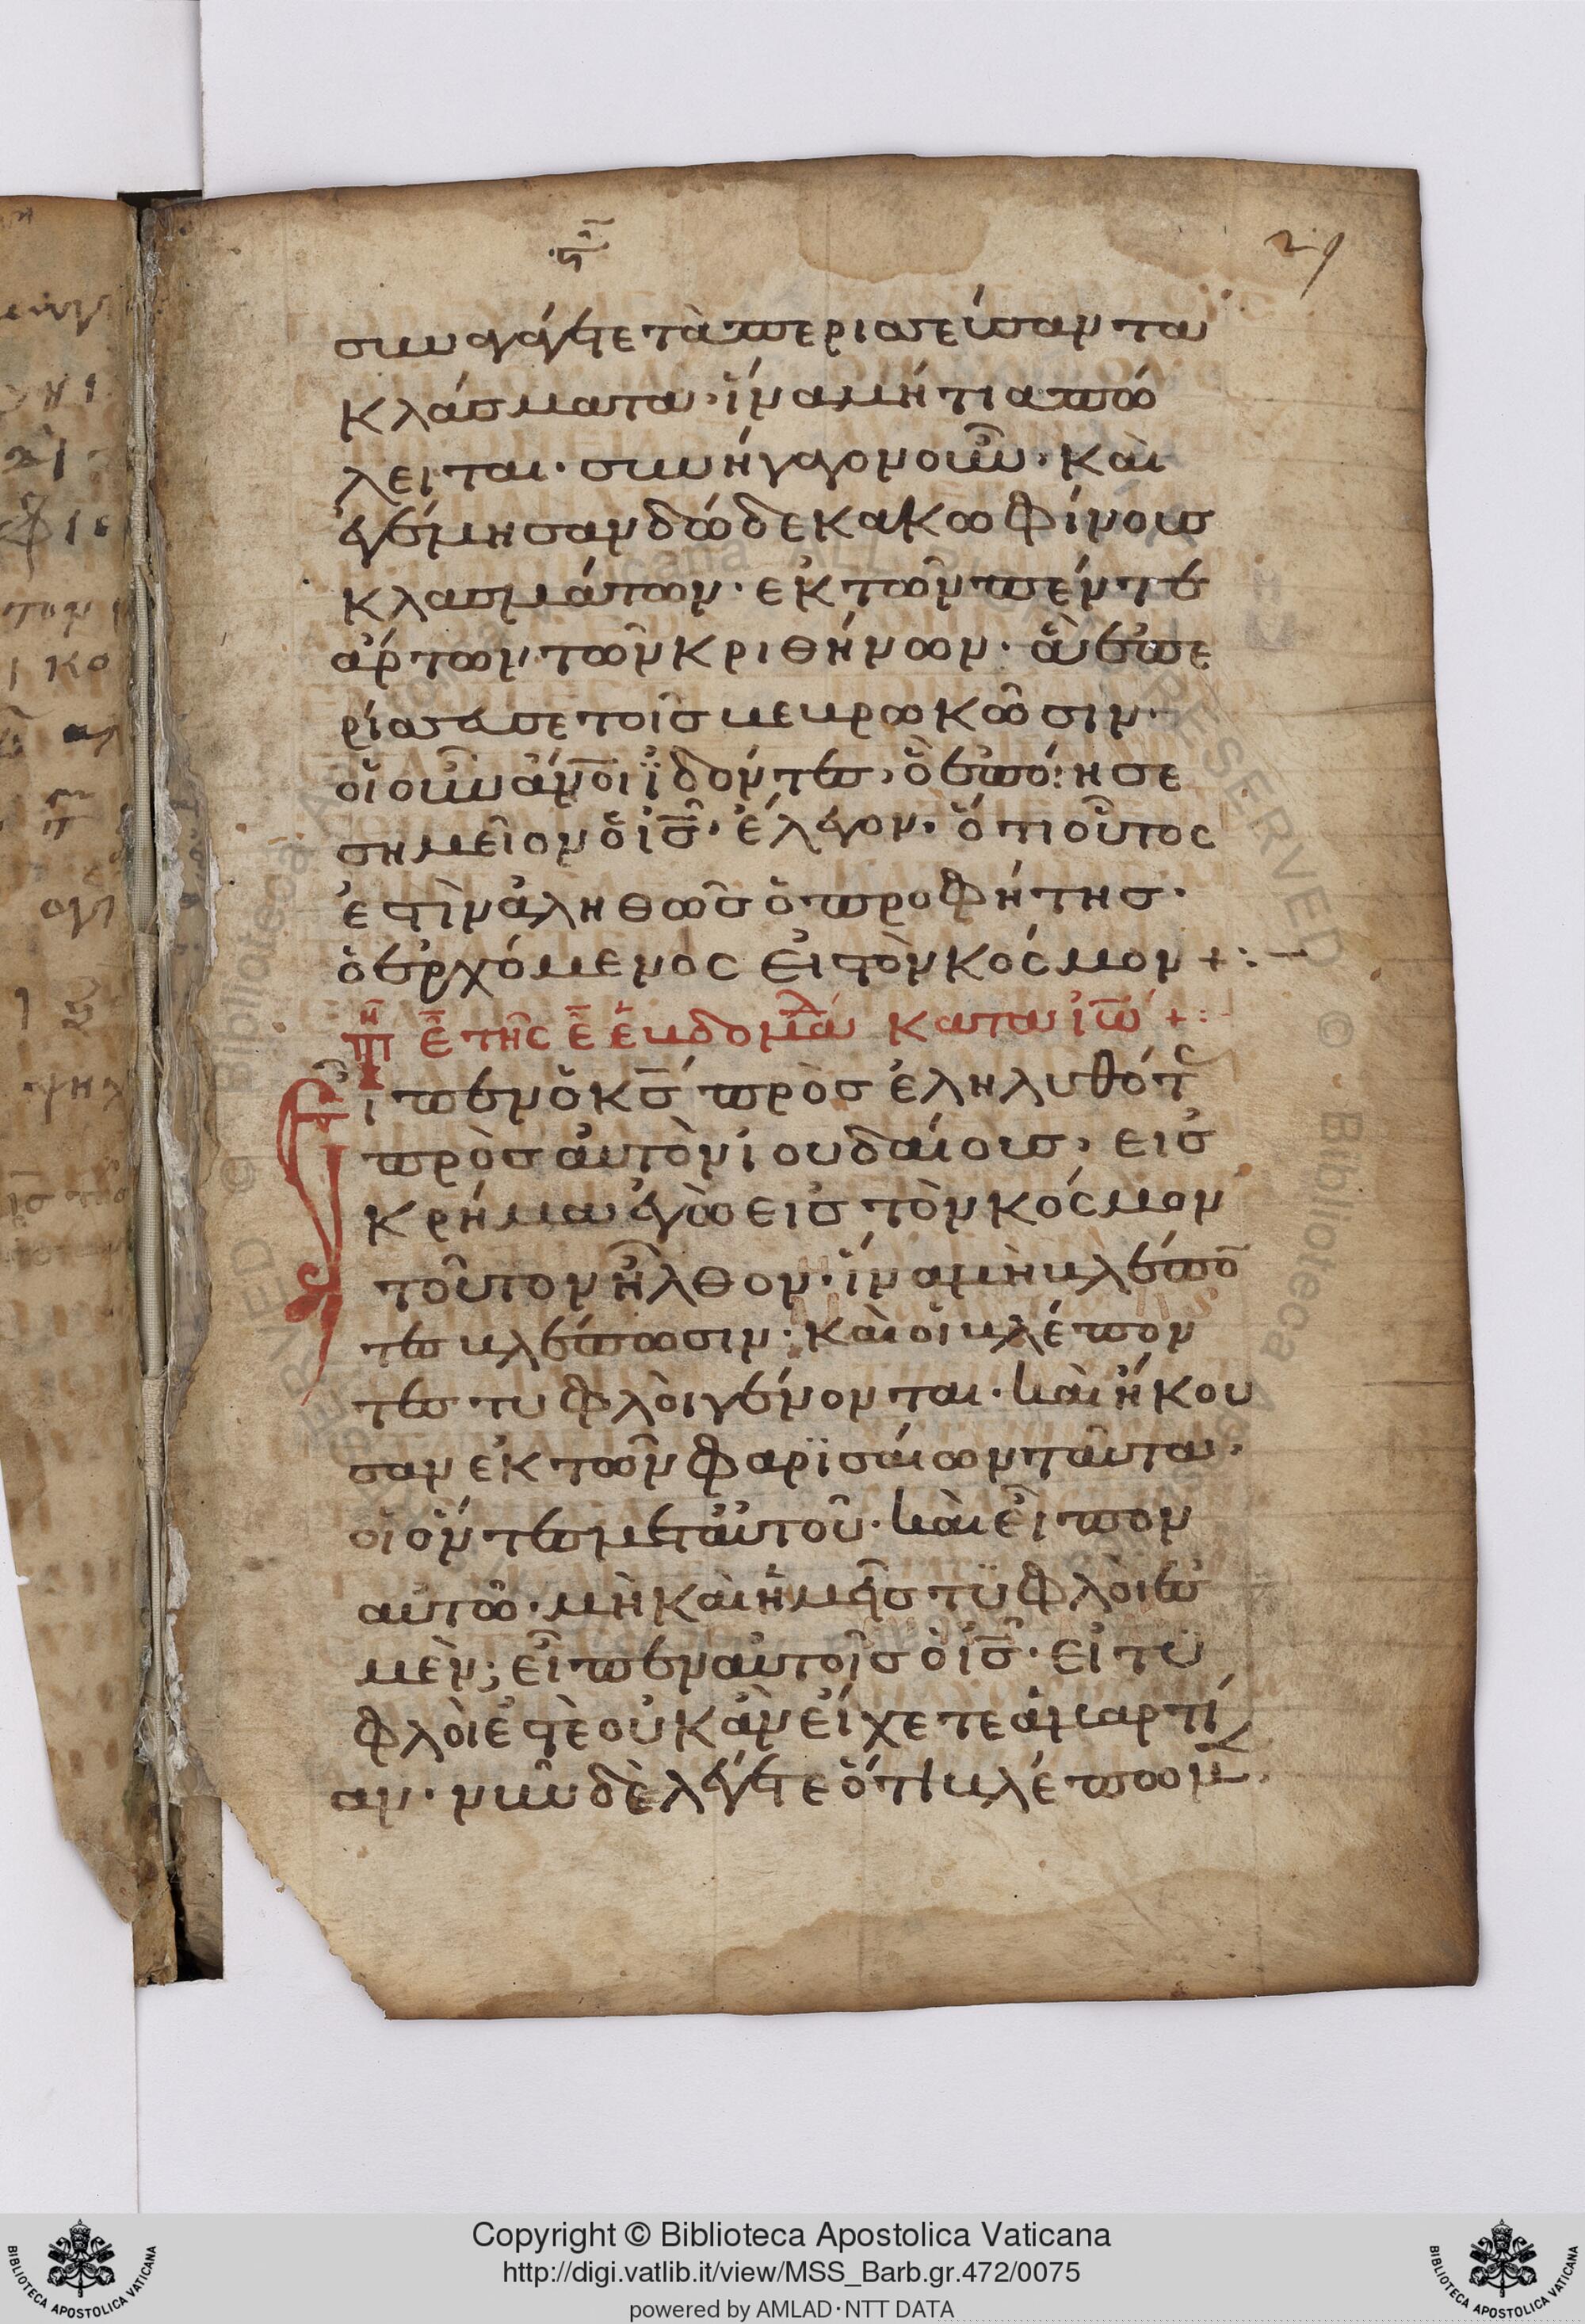 29
συναγάγετε τὰ περισσεύσαντα
κλάσματα· ἵνα μή τι απώ
λειται· συνήγαγον οὖν· καὶ
ἐγέμησαν δώδεκα κωφίνους
κλασμάτων· εκ τῶν πέντε
ἄρτων τῶν κριθήνων· ἃ ἐπε
ρίσσευσε τοῖς βεβρωκῶσιν·
οἱ οὖν ἄνοι ϊδόντες, ὃ ἐποίησε
σημεῖον ὁ ἰς̅· ἔλεγον· ὅτι οὗτος
ἐστὶν ἀληθῶς ὁ προφήτης·
ὁ ἐρχόμενος εἰ τὸν κόσμον +:-
ε̅ τῆς ε̅ ἑβδομάδ κατα ἰω̅ +:-
Εἶπεν ὁ κς̅ πρὸς ἐληλυθότ
πρὸς αὐτὸν ἰουδαίους, εἰς
κρήμα ἐγὼ εἰς τὸν κόσμον
τοῦτον ἦλθον· ἵνα μὴ βλέπο
τες βλέπωσιν· καὶ οἱ βλέπον
τες τυφλοὶ γένονται· καὶ ἤκου
σαν ἐκ τῶν φαρϊσαίων ταῦτα·
οἱ ὄντες μετ αὐτοῦ· καὶ εἶπον
αὐτῶ· μὴ καὶ ἡμεῖς τϋφλοὶ ἐσ
μὲν; εἶπεν αὐτοῖς ὁ ἰς̅· εἰ τϋ
φλοὶ ἐστὲ οὐκ ἂν εἴχετε ἁμαρτί
αν· νῦν δὲ λέγετε ὅτι βλέπωμ
Copyright © Biblioteca Apostolica Vaticana
http://digi.vatlib.it/view/MSS_Barb.gr.472/0075
powered by AMLAD·NTT DATA